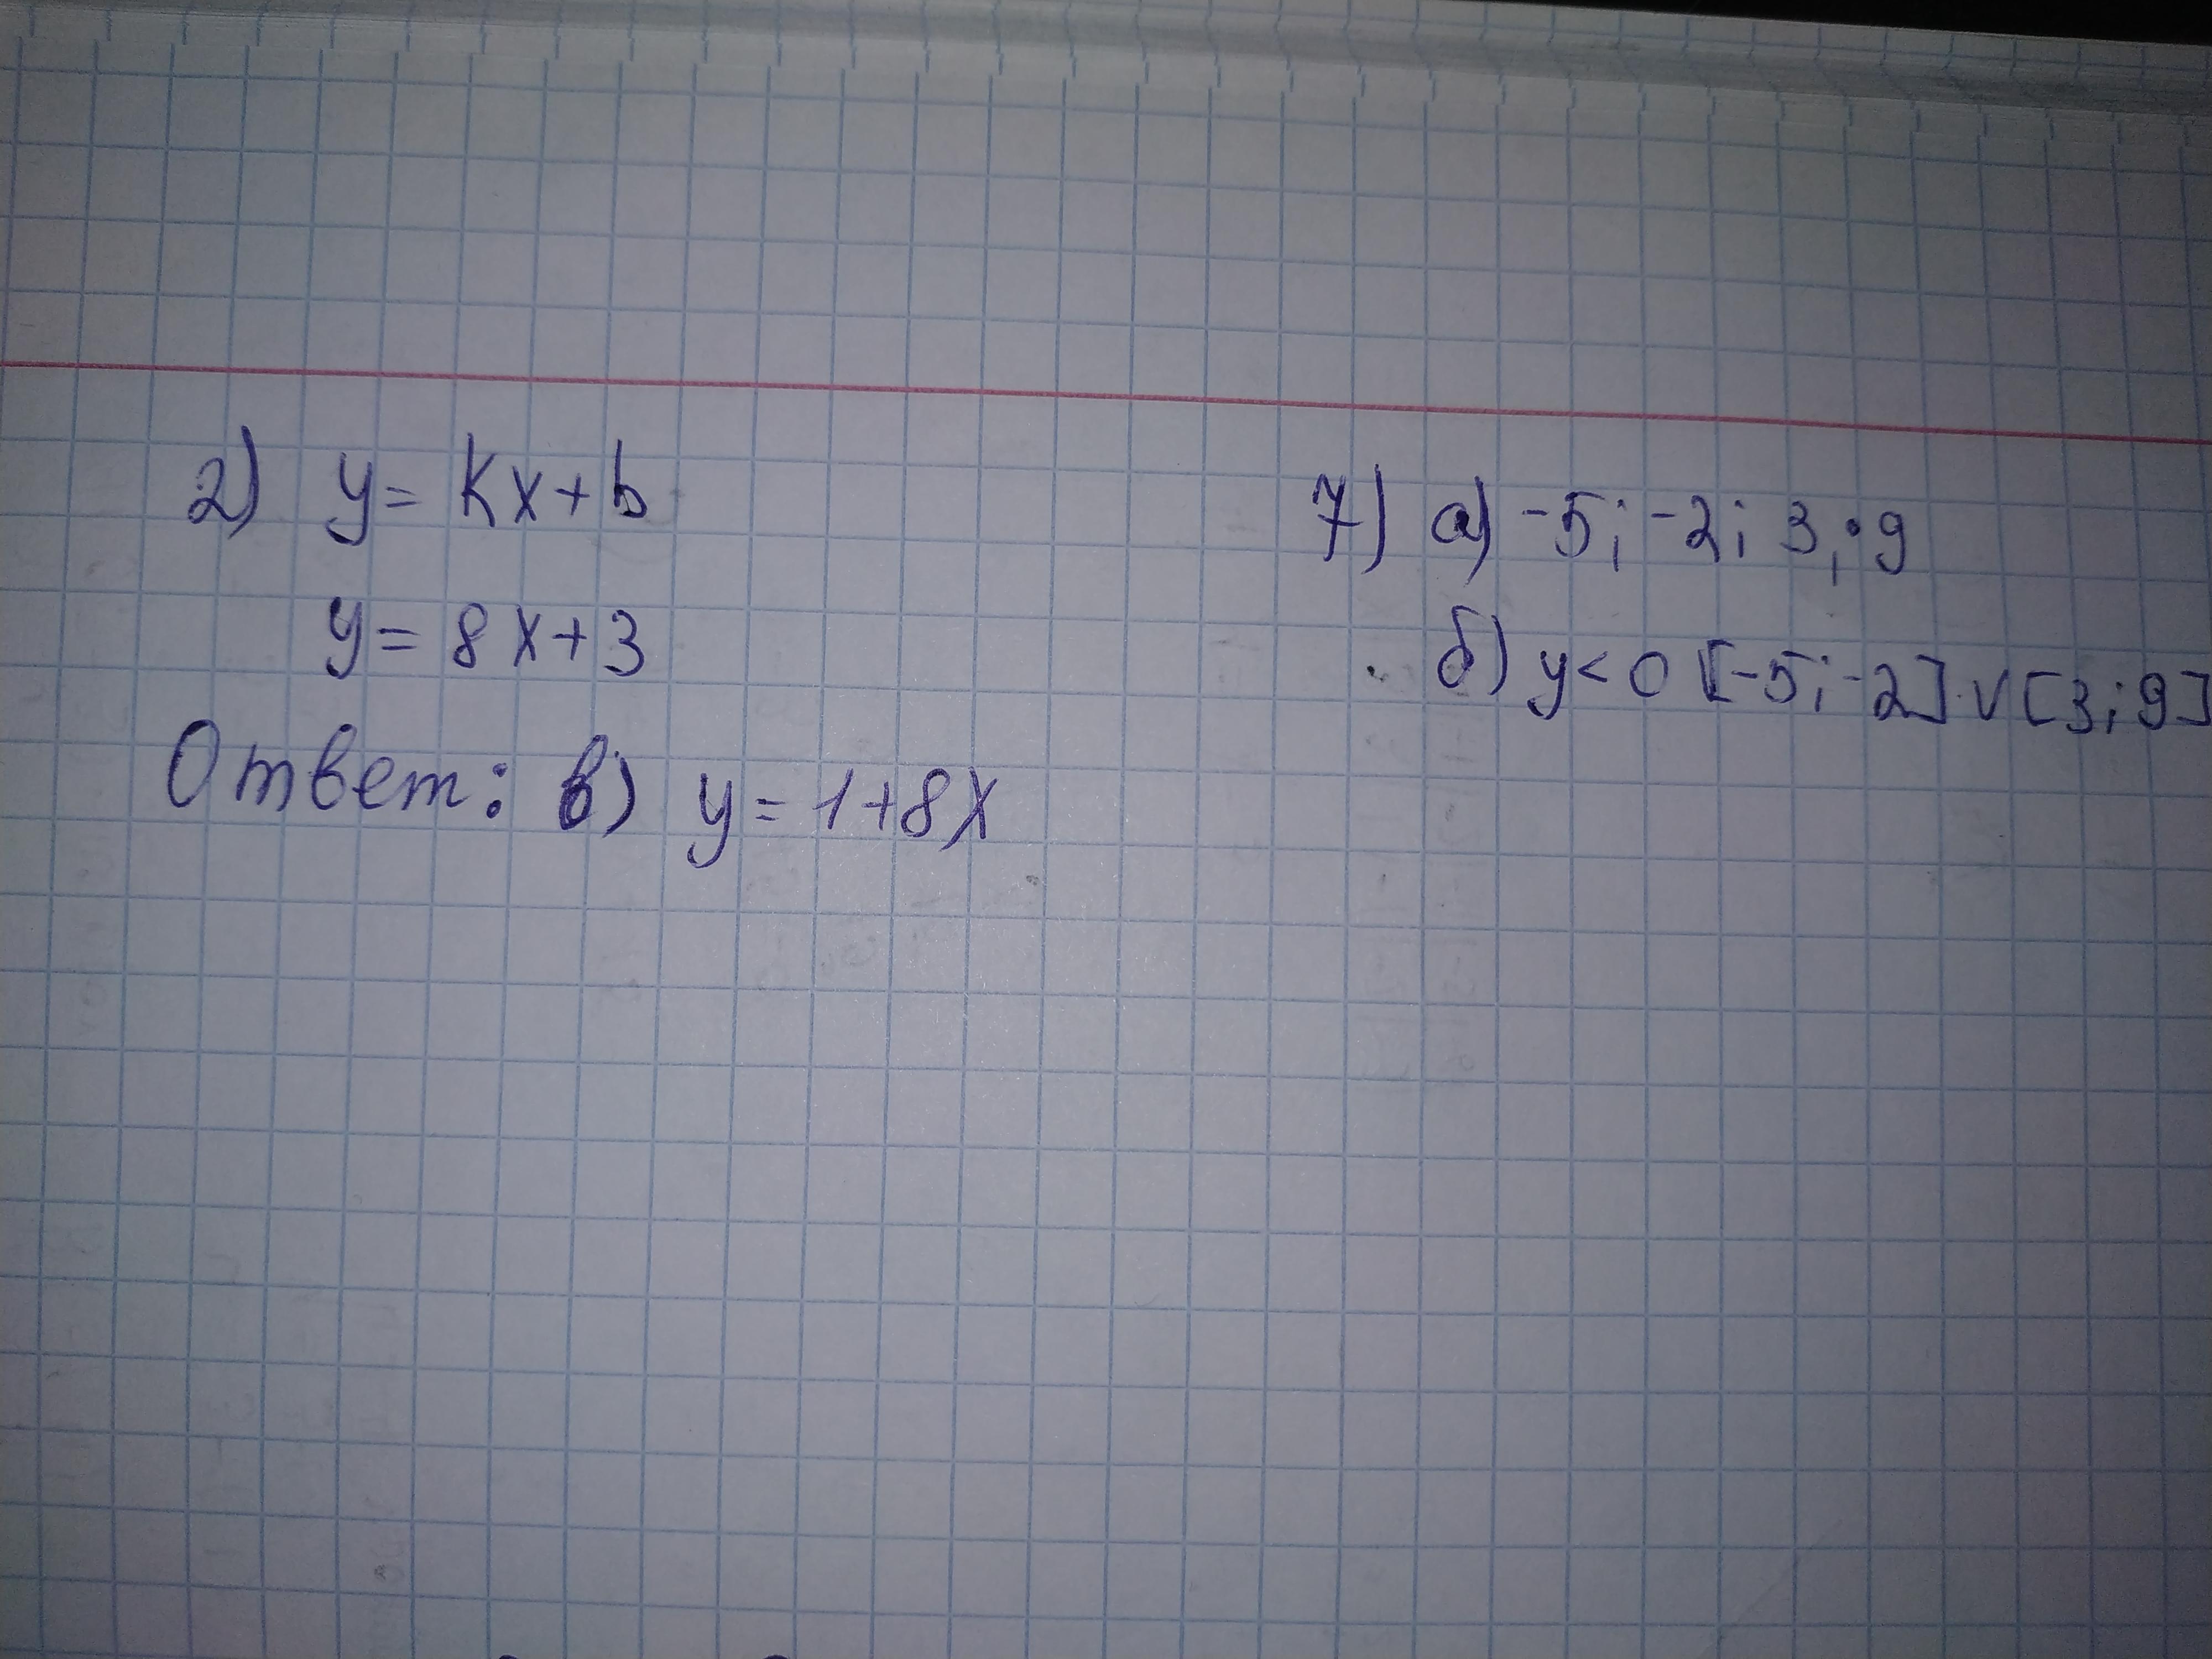 2) y = kx + b
y = 8x + 3
Ответ: в) y = 1 + 8x
7) а) -5; -2; 3; 9
б) y < 0 [-5; -2] ∨ [3; 9]